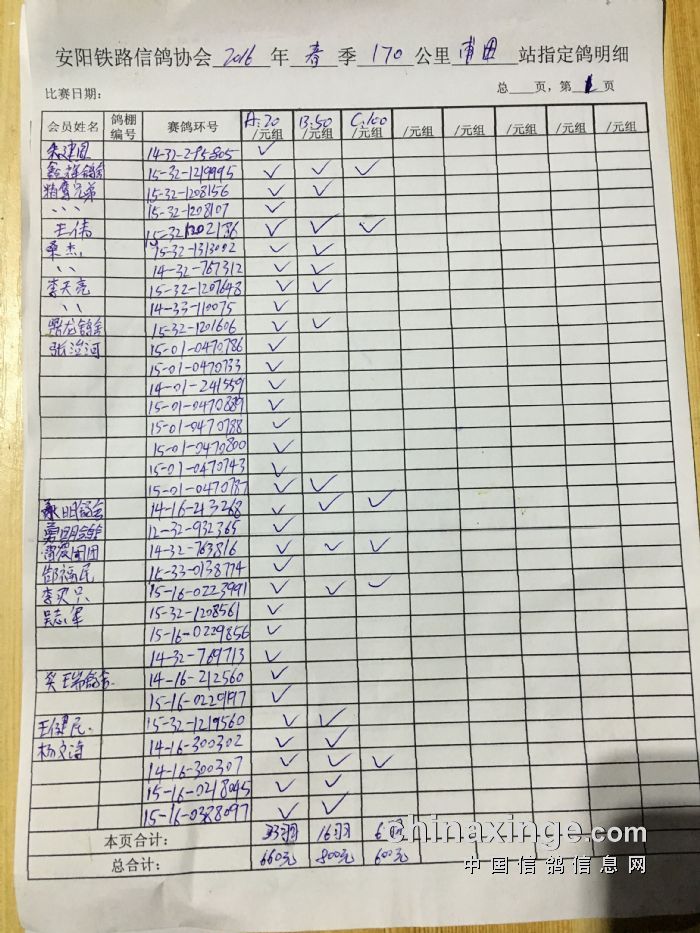 安阳铁路信鸽协会 2016 年 春 季 170 公里 莆田 站指定鸽明细
比赛日期: 总 页，第 1 页
会员姓名 鸽棚编号 赛鸽环号 A:20/元组 B:50/元组 C:100/元组 /元组 /元组 /元组 /元组 /元组
朱建国 14-32-295805 ✓
15-32-1219995 ✓ ✓ ✓
精英兄弟 15-32-1208156 ✓ ✓
、、 15-32-1208107 ✓
王伟 15-32-1202186 ✓ ✓ ✓
桑杰 15-32-1313002 ✓ ✓
、、 14-32-767312 ✓ ✓
李天亮 15-32-1207648 ✓ ✓
、、 14-33-110075 ✓
鼎龙鸽舍 15-32-1201606 ✓ ✓
张治河 15-01-0470786 ✓
15-01-0470733 ✓
14-01-241559 ✓
15-01-0470889 ✓
15-01-0470788 ✓
15-01-0470800 ✓
15-01-0470743 ✓
15-01-0470787 ✓ ✓
明鸽舍 14-16-243268 ✓ ✓ ✓
12-32-932365 ✓
14-32-763816 ✓ ✓ ✓
郜福民 15-33-0138774 ✓
李 15-16-0223991 ✓ ✓ ✓
吴志军 15-32-1208561 ✓
15-16-0229856 ✓
14-32-769713 ✓
鸽舍 14-16-212560 ✓
15-16-0229197 ✓
王保民 15-32-1219560 ✓ ✓
杨文涛 14-16-300302 ✓ ✓
14-16-300307 ✓ ✓ ✓
15-16-0218045 ✓ ✓
15-16-0388097 ✓ ✓
本页合计: 33羽 16羽 6羽
总合计: 660元 800元 600元
chinaxinge.com
中国信鸽信息网